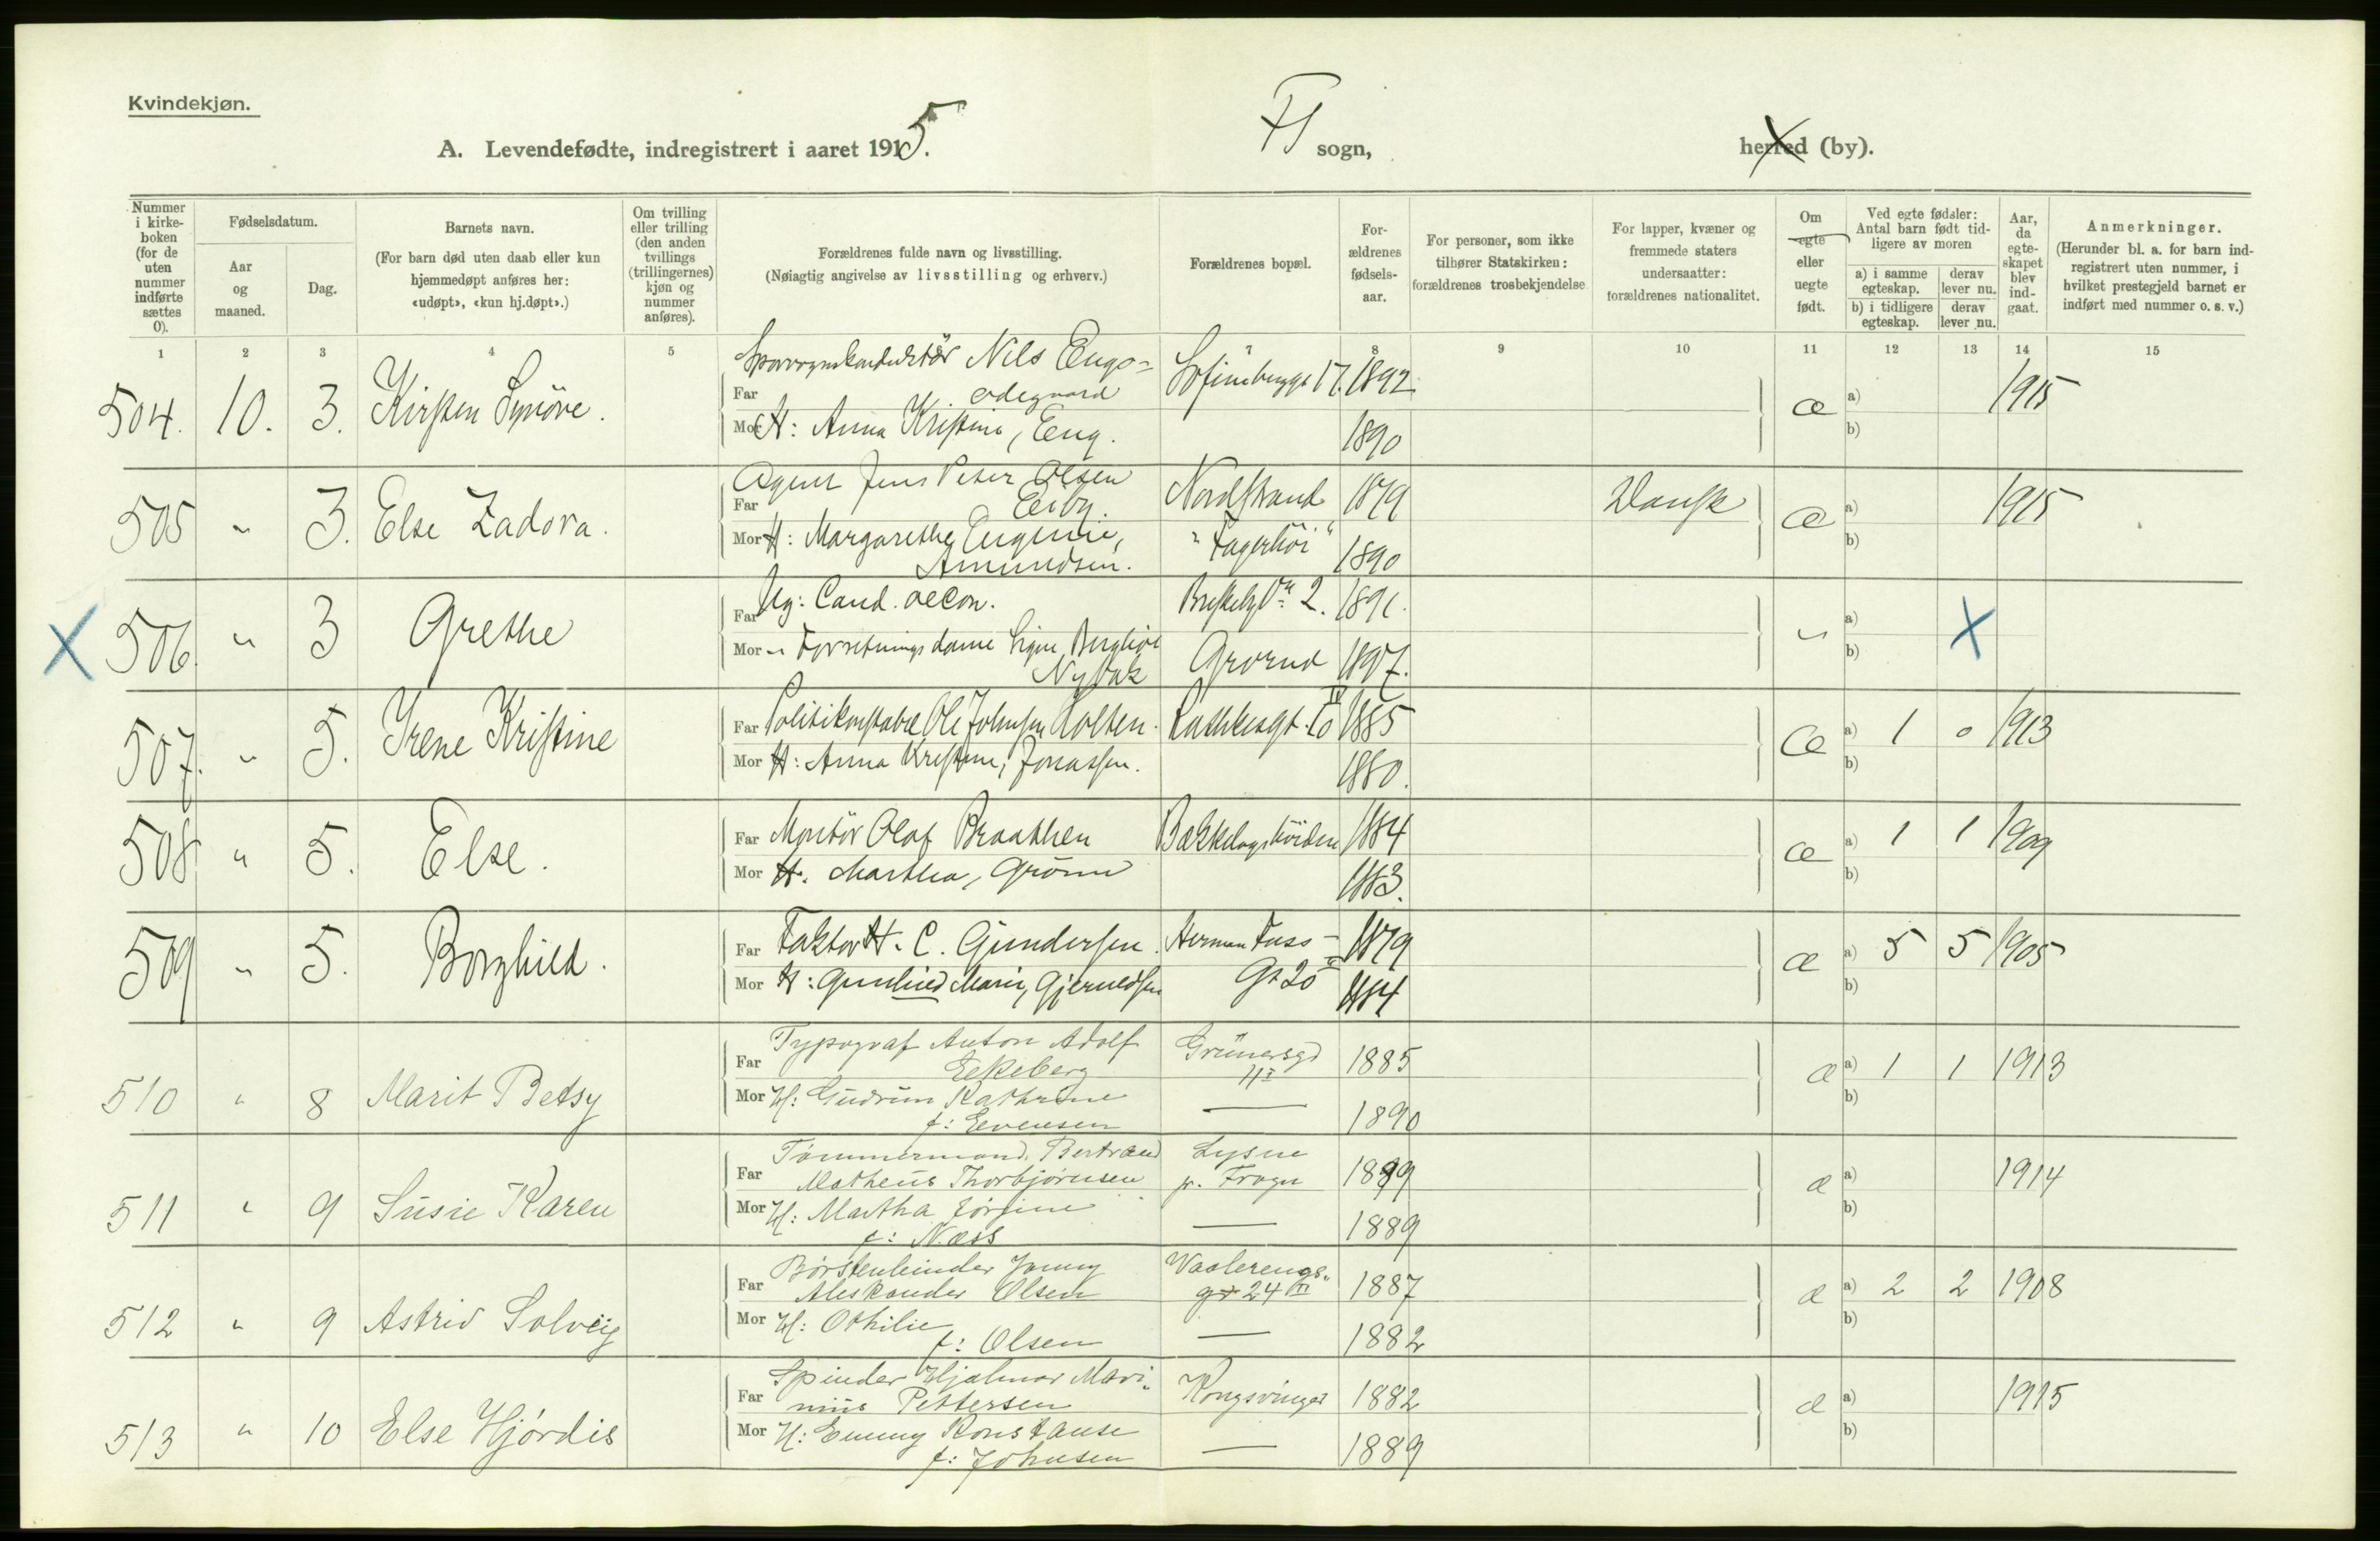 Kvindekjøn.
A. Levendefødte, indregistrert i aaret 1915.
sogn,
herred (by).
Nummer i kirke-boken (for de uten nummer indførte sættes 0).
Fødselsdatum.
Aar og maaned.
Dag.
Barnets navn.
(For barn død uten daab eller kun hjemmedøpt anføres her: «udøpt», «kun hj.døpt».)
Om tvilling eller trilling (den anden tvillings (trillingernes) kjøn og nummer anføres).
Forældrenes fulde navn og livsstilling.
(Nøiagtig angivelse av livsstilling og erhverv.)
Forældrenes bopæl.
For-ældrenes fødsels-aar.
For personer, som ikke tilhører Statskirken: forældrenes trosbekjendelse
For lapper, kvæner og fremmede staters undersaatter: forældrenes nationalitet.
Om egte eller uegte født.
Ved egte fødsler: Antal barn født tid-ligere av moren
a) i samme egteskap.
derav lever nu.
b) i tidligere egteskap.
derav lever nu.
Aar, da egte-skapet blev ind-gaat.
Anmerkninger.
(Herunder bl. a. for barn ind-registrert uten nummer, i hvilket prestegjeld barnet er indført med nummer o. s. v.)
1 2 3 4 5 7 8 9 10 11 12 13 14 15
504. 10. 3. Kirsten Synöve.
Far Nils Engo= odegaard 17. 1892
Mor H: Anna Kristine, Eng. 1890
æ a) b) 1915
505 " 3. Else Zadora.
Far Agent Jens Peter Olsen Eiby. Nordstrand 1879 Dansk
Mor H: Margarethe Eugenie, Amundsen. "Fagerhöi" 1890
æ a) b) 1915
X 506. " 3 Grethe
Far Ug: Cand. oecon. 2. 1891.
Mor " Forretningsdame Signe Bergliot Nybak Grorud 1897.
a) b) X
507. " 5. Irene Kristine
Far Politikonstabel Ole Johnsen Holten. 1885
Mor H: Anna Kristine, Jonassen. 1880.
æ a) 1 0 1913
b)
508 " 5. Else.
Far Montör Olaf Braathen Bækkelagshöiden 1884
Mor H. Martha, Grönn 1883.
æ a) 1 1 1909
b)
509 " 5. Borghild.
Far Faktor H. C. Gundersen. Herman Foss- 1879
Mor H: Gunhild Marie, Gjeruldsen Gt 20 1884
æ a) 5 5 1905
b)
510 " 8 Marit Betsy
Far Typograf Anton Adolf Eekeberg Grünersgd 1885
Mor H: Gudrun Kathrine f: Evensen — 1890
æ a) 1 1 1913
b)
511 " 9 Susie Karen
Far Tømmermand. Bertrand Matheus Thorbjørnsen Lysne p. Frogn 1889
Mor H: Martha Jørgine f: Næss — 1889
æ a) b) 1914
512 " 9 Astrid Solveig
Far Børstenbinder Jonny Aleksander Olsen Vaalerengs- gt 24 III 1887
Mor H: Othilie f: Olsen — 1882
æ a) 2 2 1908
b)
513 " 10 Else Hjørdis
Far Spinder Hjalmar Mari- nius Pettersen Kongsvinger 1882
Mor H: Emmy Konstanse f: Johnsen — 1889
æ a) b) 1915